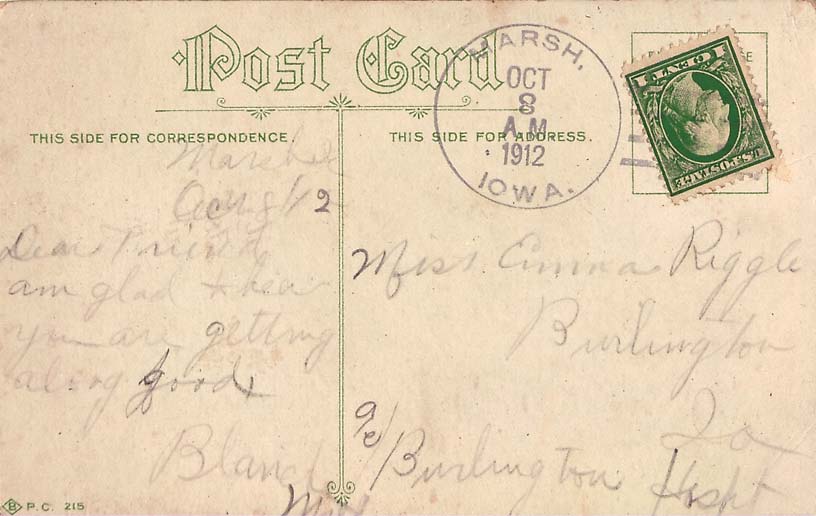 Post Card
THIS SIDE FOR CORRESPONDENCE.
THIS SIDE FOR ADDRESS.
MARSH,
OCT
8
A.M.
1912
IOWA.
1 CENT 1
U.S.POSTAGE
Dear Friend
am glad to hear
you are getting
along good
Miss Emma Riggle
Burlington
Ia
Burlington
Hospt
B P.C. 215